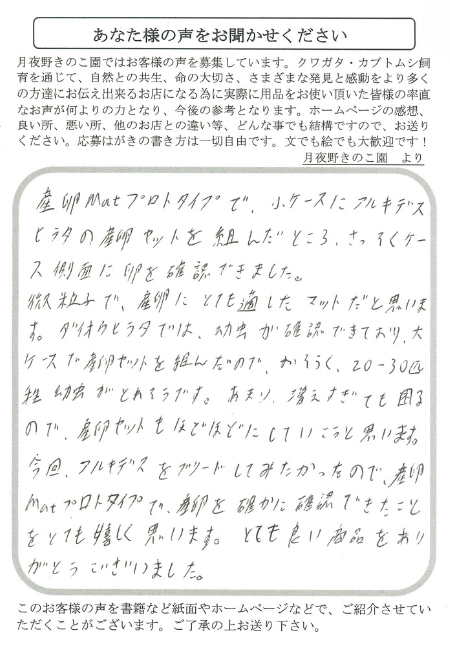 あなた様の声をお聞かせください
月夜野きのこ園ではお客様の声を募集しています。クワガタ・カブトムシ飼
育を通じて、自然との共生、命の大切さ、さまざまな発見と感動をより多く
の方達にお伝え出来るお店になる為に実際に用品をお使い頂いた皆様の率直
なお声が何よりの力となり、今後の参考となります。ホームページの感想、
良い所、悪い所、他のお店との違い等、どんな事でも結構ですので、お送り
ください。応募はがきの書き方は一切自由です。文でも絵でも大歓迎です！
月夜野きのこ園　より
産卵Matプロトタイプで、小ケースにアルキデス
ヒラタの産卵セットを組んだところ、さっそくケー
ス側面に卵を確認できました。
微粒子で、産卵にとても適したマットだと思いま
す。ダイオウヒラタでは、幼虫が確認できており、大
ケースで産卵セットを組んだので、おそらく、20-30匹
程幼虫がとれそうです。あまり、増えすぎても困る
ので、産卵セットもほどほどにしていこうと思います。
今回、アルキデスをブリードしてみたかったので、産卵
Matプロトタイプで、産卵を確かに確認できたこと
をとても嬉しく思います。とても良い商品をあり
がとうございました。
このお客様の声を書籍など紙面やホームページなどで、ご紹介させてい
ただくことがございます。ご了承の上お送り下さい。